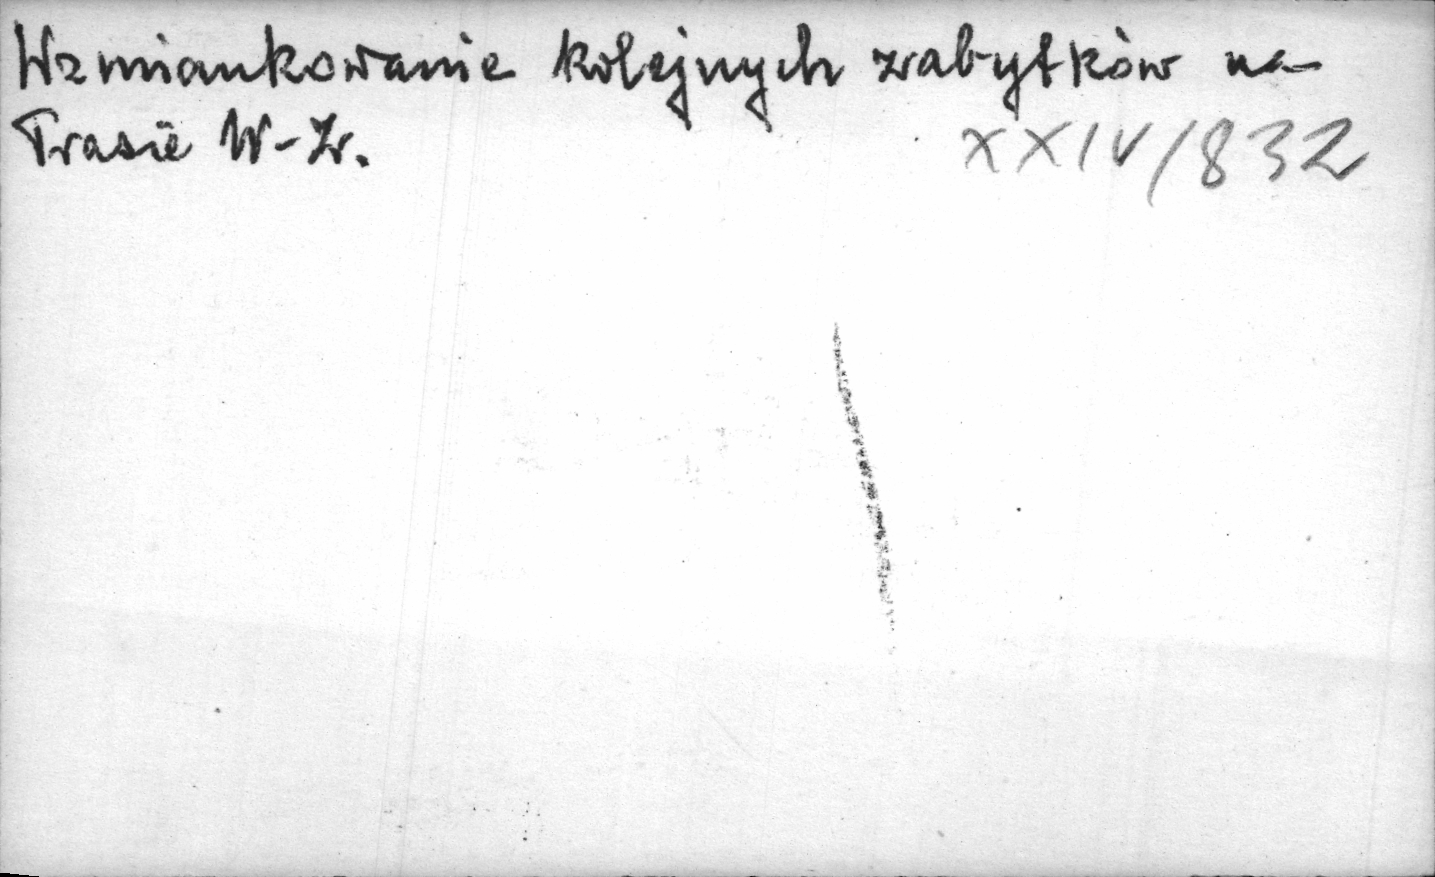 Wzmiankowanie kolejnych zabytków na
Trasie W-Z.
XXIV/832